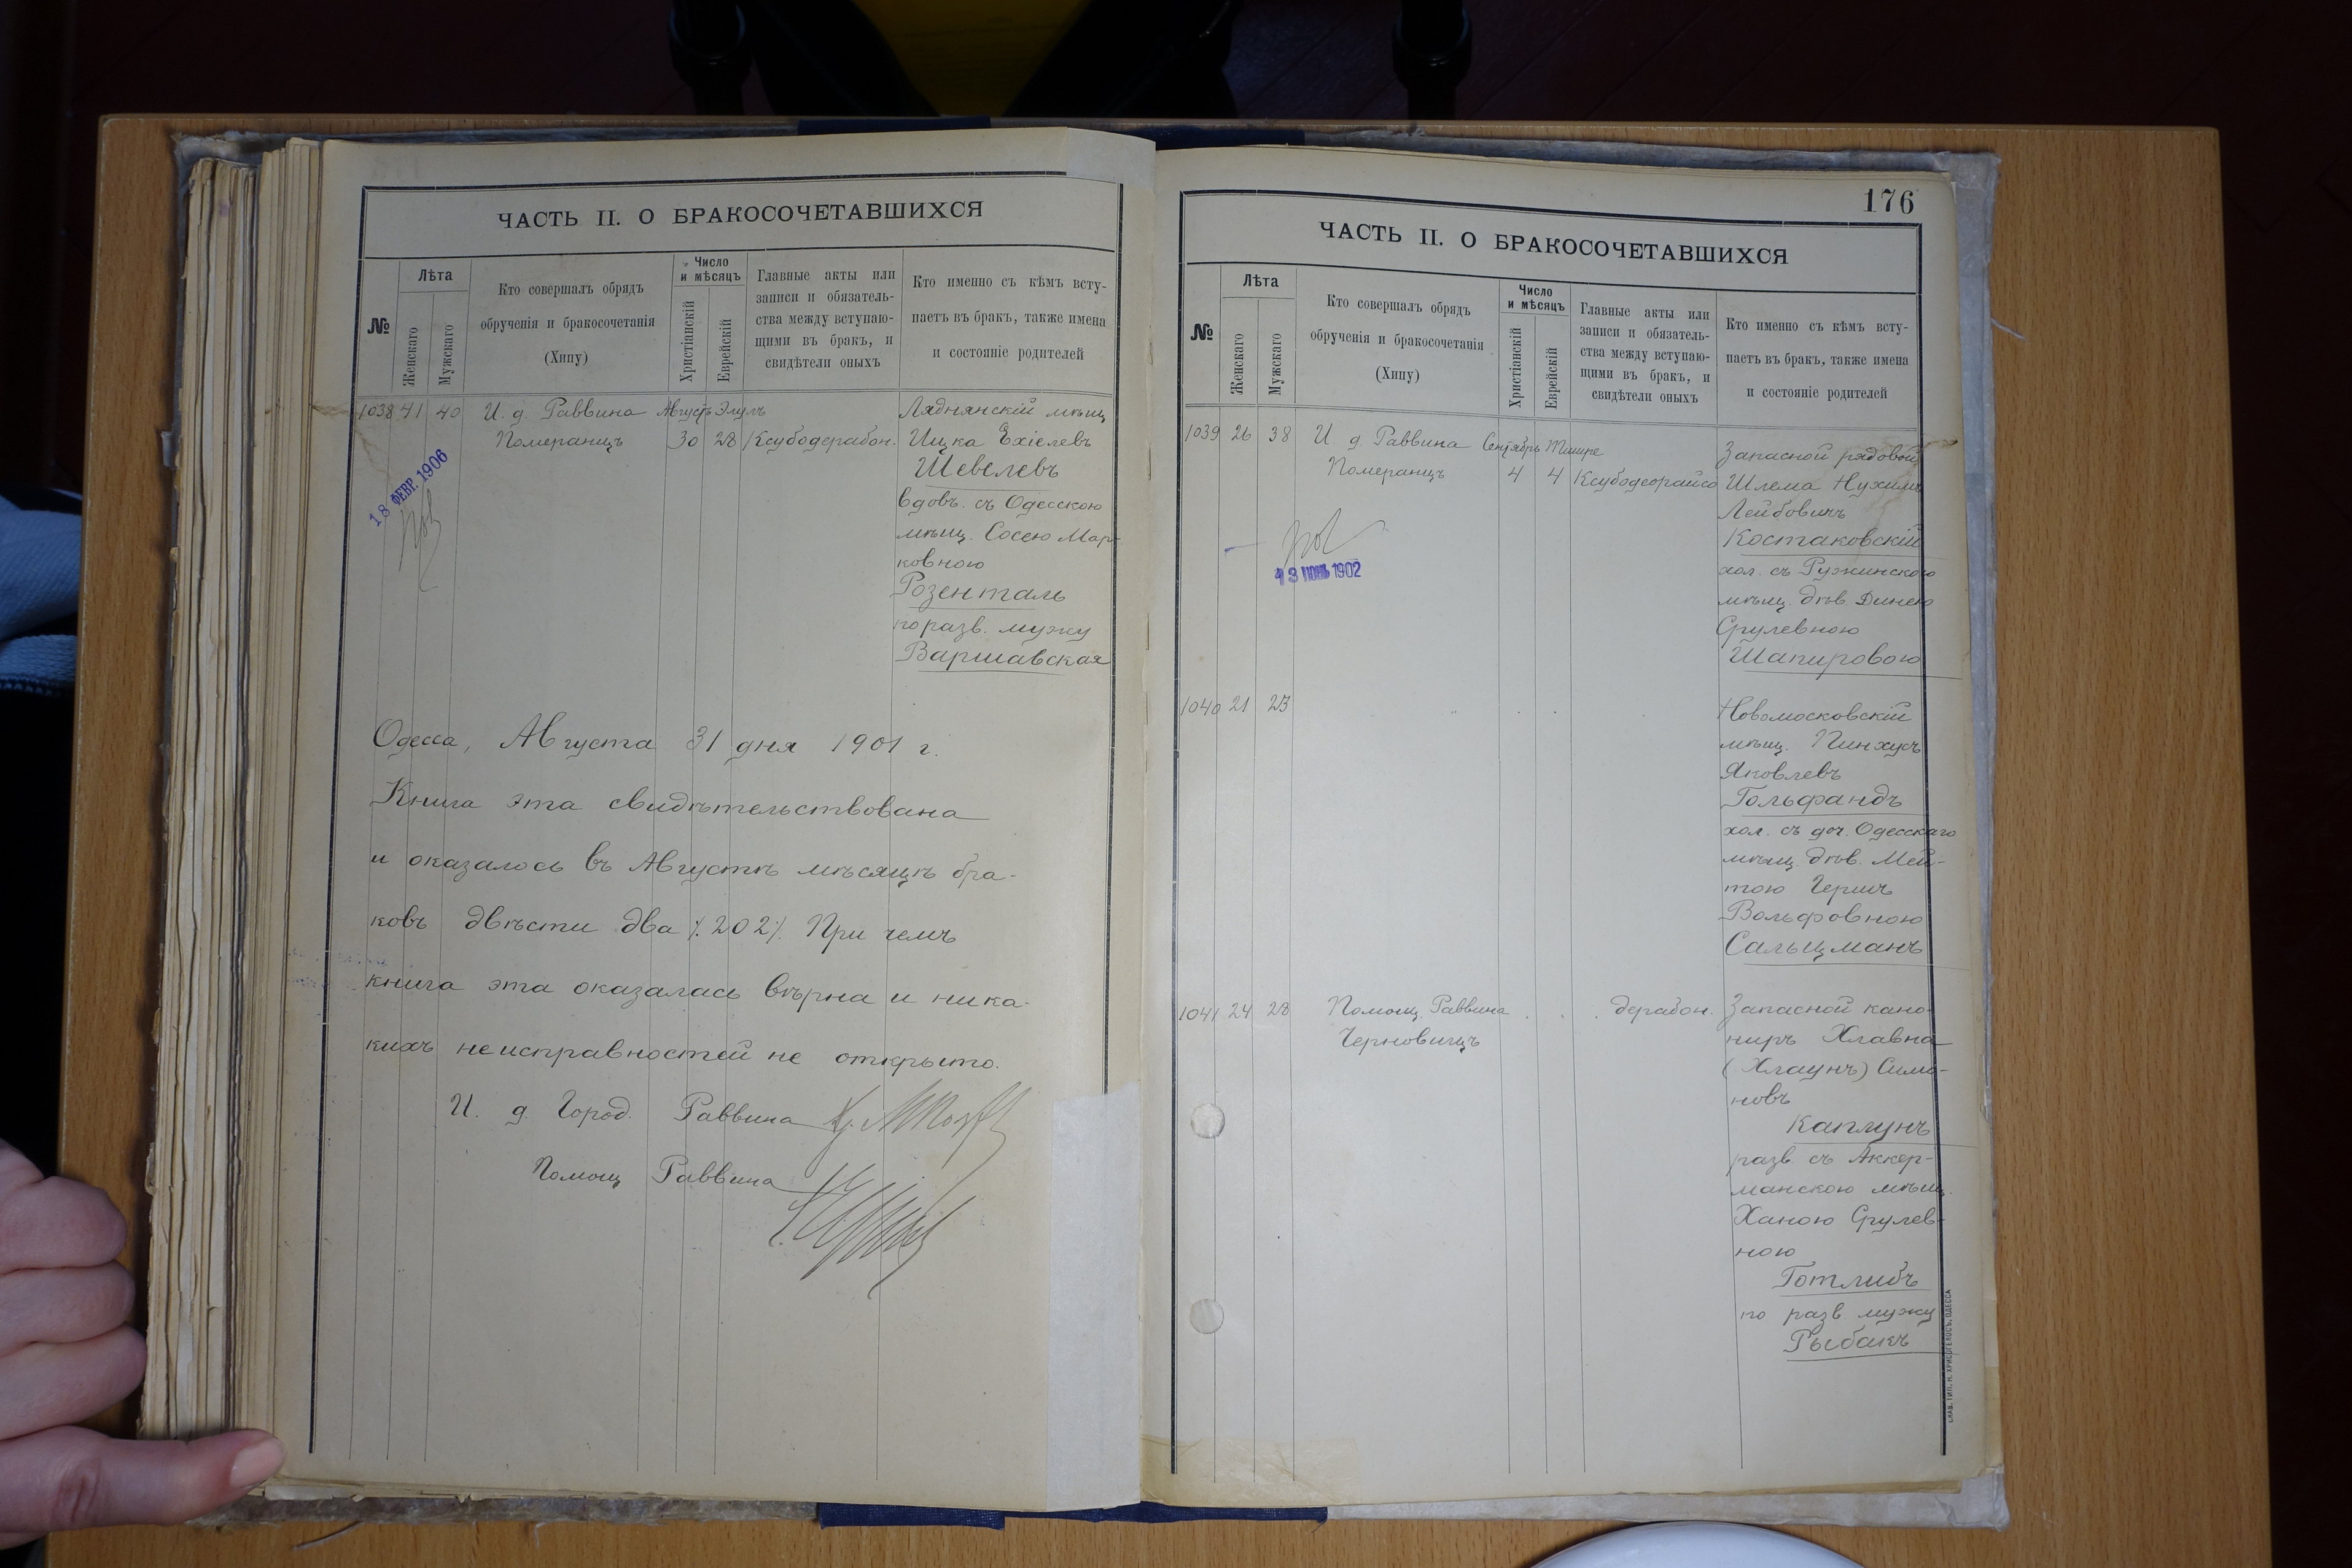 ЧАСТЬ II. О БРАКОСОЧЕТАВШИХСЯ
№
Лѣта
Женскаго
Мужскаго
Кто совершалъ обрядъ
обрученія и бракосочетанія
(Хипу)
Число
и мѣсяцъ
Христіанскій
Еврейскій
Главные акты или
записи и обязатель-
ства между вступаю-
щими въ бракъ, и
свидѣтели оныхъ
Кто именно съ кѣмъ всту-
паетъ въ бракъ, также имена
и состояніе родителей
1038 41 40 И. д. Раввина Августъ Элулъ
Померанцъ 30 28 Ксубодерабон.
Ляднянскій мѣщ
Ицка Ехіелевъ
Шевелевъ
вдовъ. съ Одесскою
мѣщ. Сосею Мар-
ковною
Розенталь
по разв. мужу
Варшавская
18 ФЕВР. 1906
Одесса, Августа 31 дня 1901 г.
Книга эта свидѣтельствована
и оказалось въ Августѣ мѣсяцѣ бра-
ковъ двѣсти два ٪ 202 ٪. При чемъ
книга эта оказалась вѣрна и ника-
кихъ неисправностей не открыто.
И. д. Город. Раввина
Помощ Раввина
176
ЧАСТЬ II. О БРАКОСОЧЕТАВШИХСЯ
№
Лѣта
Женскаго
Мужскаго
Кто совершалъ обрядъ
обрученія и бракосочетанія
(Хипу)
Число
и мѣсяцъ
Христіанскій
Еврейскій
Главные акты или
записи и обязатель-
ства между вступаю-
щими въ бракъ, и
свидѣтели оныхъ
Кто именно съ кѣмъ всту-
паетъ въ бракъ, также имена
и состояніе родителей
1039 26 38 И д. Раввина Сентябрь Тишре
Померанцъ 4 4 Ксубодеорайсо
Запасной рядовой
Шлема Нухимъ
Лейбовичъ
Костаковскій
хол. съ Ружинскою
мѣщ. дѣв. Динею
Срулевною
Шапировою
1902
1040 21 23
Новомосковскій
мѣщ. Пинхусъ
Яковлевъ
Гольфандъ
хол. съ доч. Одесскаго
мѣщ. дѣв. Мей-
тою Гершъ
Вольфовною
Сальцманъ
1041 24 28 Помощ. Раввина . . . дерабон.
Черновицъ
Запасной кано-
ниръ Хлавна
(Хлаунъ) Симо-
новъ
Каплунъ
разв. съ Аккер-
манскою мѣщ.
Ханою Срулев-
ною
Готлибъ
по разв. мужу
Рыбакъ
СЛАВ. ТИП. Н. ХРИСОГЕЛОСЪ, ОДЕССА